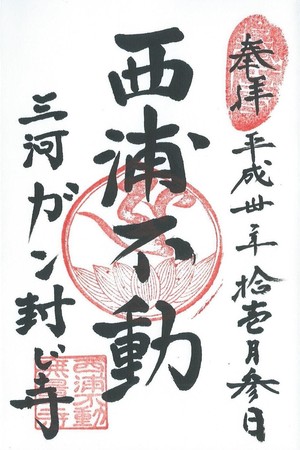 奉拝
平成卅年拾壱月参日
西浦不動
三河ガン封じ寺
西浦不動
無量寺